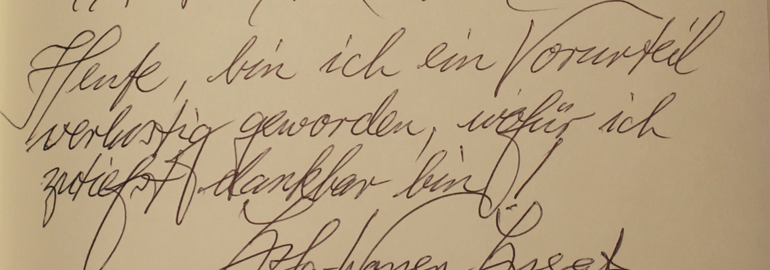 Heute, bin ich ein Vorurteil
verlustig geworden, wofür ich
zutiefst dankbar bin!